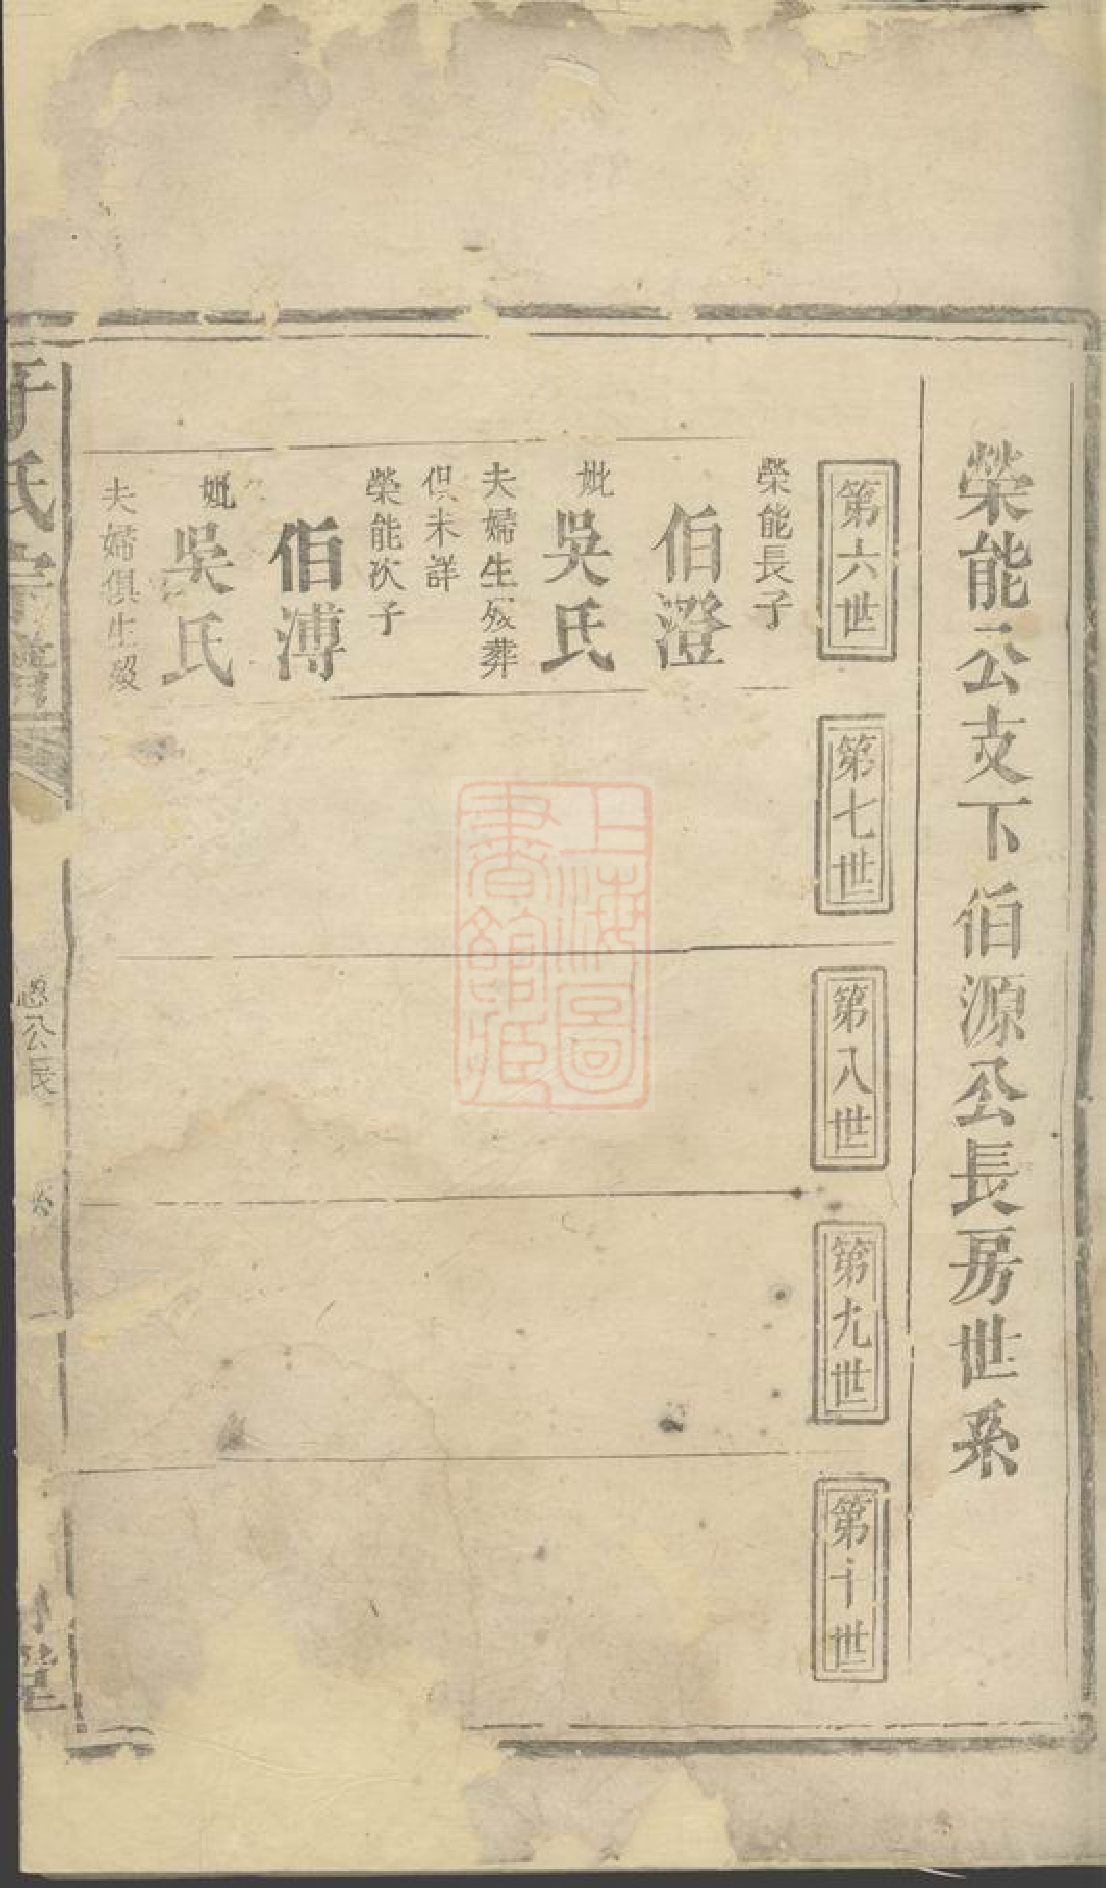 榮能公支下伯源公長房世系
第六世
第七世
第八世
第九世
第十世
榮能長子
伯澄
妣
吳氏
夫婦生殁葬
俱未詳
榮能次子
伯溥
妣
吳氏
夫婦俱生殁
氏宗譜
公長
堂
上海圖
書館藏